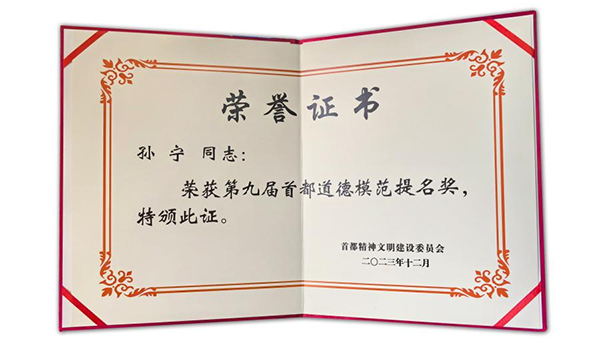 荣誉证书
孙宁 同志：
荣获第九届首都道德模范提名奖，
特颁此证。
首都精神文明建设委员会
二〇二三年十二月